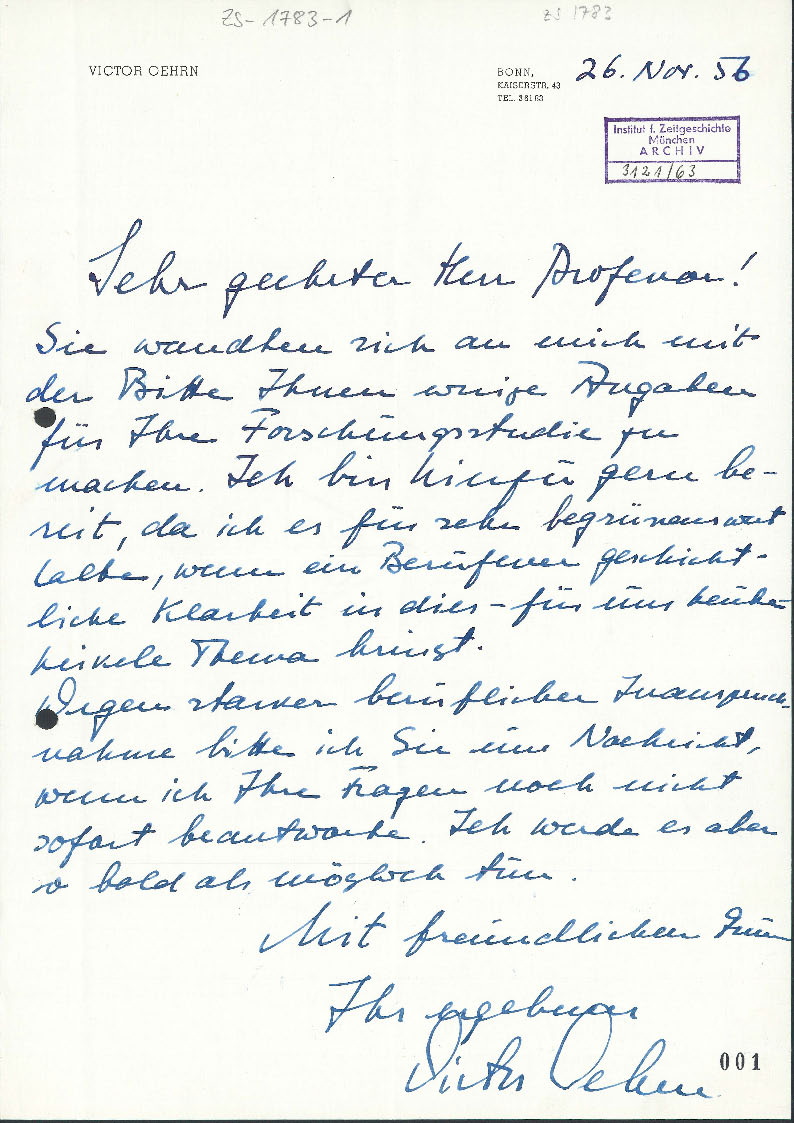 ZS-1783-1
ZS 1783
VICTOR OEHRN
BONN,
KAISERSTR. 43
TEL. 36163
26. Nov. 56
Institut f. Zeitgeschichte
München
ARCHIV
3121/63
Sehr geehrter Herr Professor!
Sie wandten sich an mich mit
der Bitte Ihnen einige Angaben
für Ihre Forschungsstudie zu
machen. Ich bin hierfür gern be-
reit, da ich es für sehr begrüssenswert
halte, wenn ein Berufener geschicht-
liche Klarheit in dies – für uns
heikele Thema bringt.
Wegen starker beruflicher Inanspruch-
nahme bitte ich Sie um Nachsicht,
wenn ich Ihre Fragen noch nicht
sofort beantworte. Ich werde es aber
so bald als möglich tun.
Mit freundlichem Gruss
Ihr ergebener
Victor Oehrn
001